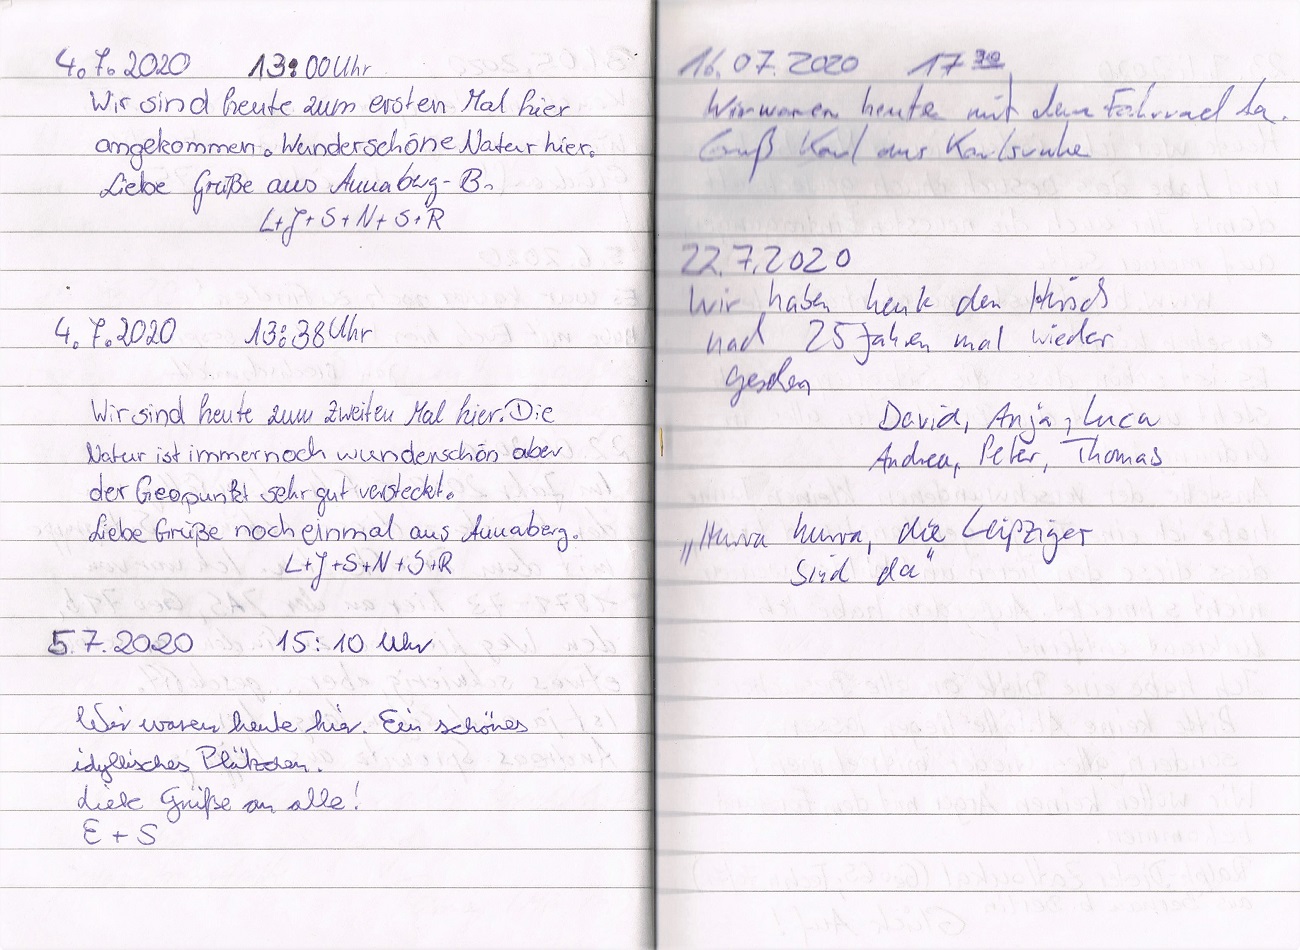 4.7.2020 13:00 Uhr
Wir sind heute zum ersten Mal hier
angekommen. Wunderschöne Natur hier.
Liebe Grüße aus Annaberg-B.
L+J+S+N+S+R
4.7.2020 13:38 Uhr
Wir sind heute zum zweiten Mal hier. Die
Natur ist immernoch wunderschön aber
der Geopunkt sehr gut versteckt.
Liebe Grüße noch einmal aus Annaberg.
L+J+S+N+S+R
5.7.2020 15:10 Uhr
Wir waren heute hier. Ein schönes
idyllisches Plätzchen.
Liebe Grüße an alle!
E + S
16.07.2020 17 30
Wir waren heute mit dem Fahrrad da.
Gruß Karl aus Karlsruhe
22.7.2020
Wir haben heute den Hirsch
nach 25 Jahren mal wieder
gesehen
David, Anja, Luca
Andrea, Peter, Thomas
„Hurra hurra, die Leipziger
sind da“